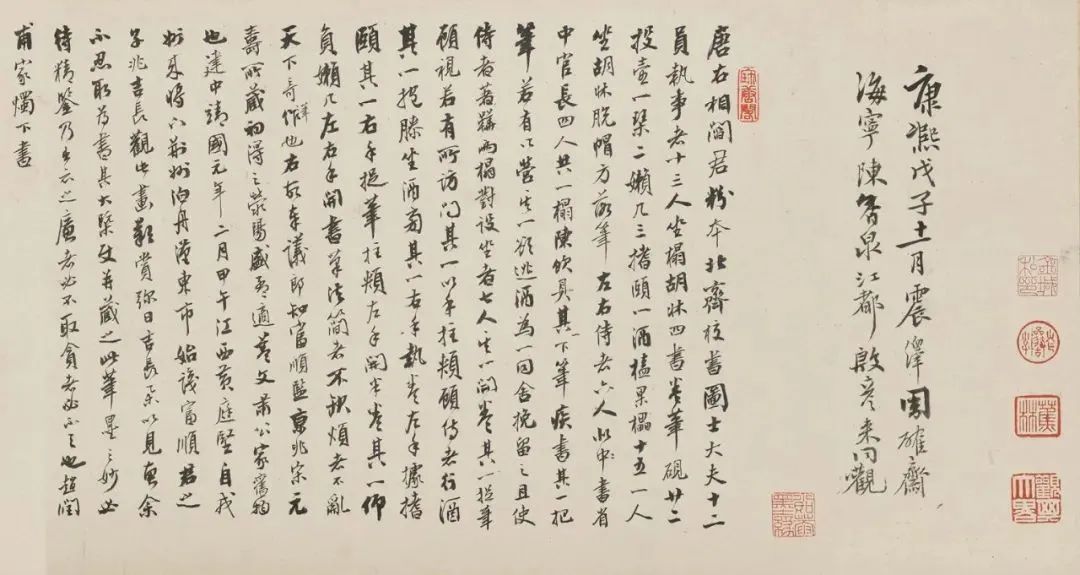 康熙戊子十一月震澤周確齋
海寧陳香泉江都殷彥来同觀
唐右相閻君粉本北齊校書圖士大夫十二
員執事者十三人坐榻胡牀四書卷筆硯廿二
投壺一琴二嬾几三搘頤一酒榼果榼十五一人
坐胡牀脫帽方落筆左右侍者六人似中書省
中官長四人共一榻陳飲具其下筆疾書其一把
筆若有所營其一欲逃酒為一同舍挽留之且使
侍者著鞾兩榻對設坐者七人其一開卷其一捉筆
顧視若有所訪問其一以手拄頰顧侍者行酒
其一抱膝坐酒旁其一右手執卷左手據搘
頤其一右手捉筆拄頰左手開半卷其一仰
負嬾几左右手開書筆法簡者不缺煩者不亂
天下奇作也右故奉議郎知富順監京兆宋元
壽所藏初得之滎陽盛適蓋文肅公家舊物
也建中靖國元年二月甲午江西黃庭堅自戎
州来將下荊州泊舟漢東市始識富順君之
子兆吉長觀此畫歎賞彌日吉長以見余
不忍取為書其大槩使并藏之此筆墨之妙必
待精鑒乃出示之廉者必不取貪者必不與也趙閏
甫家燭下書